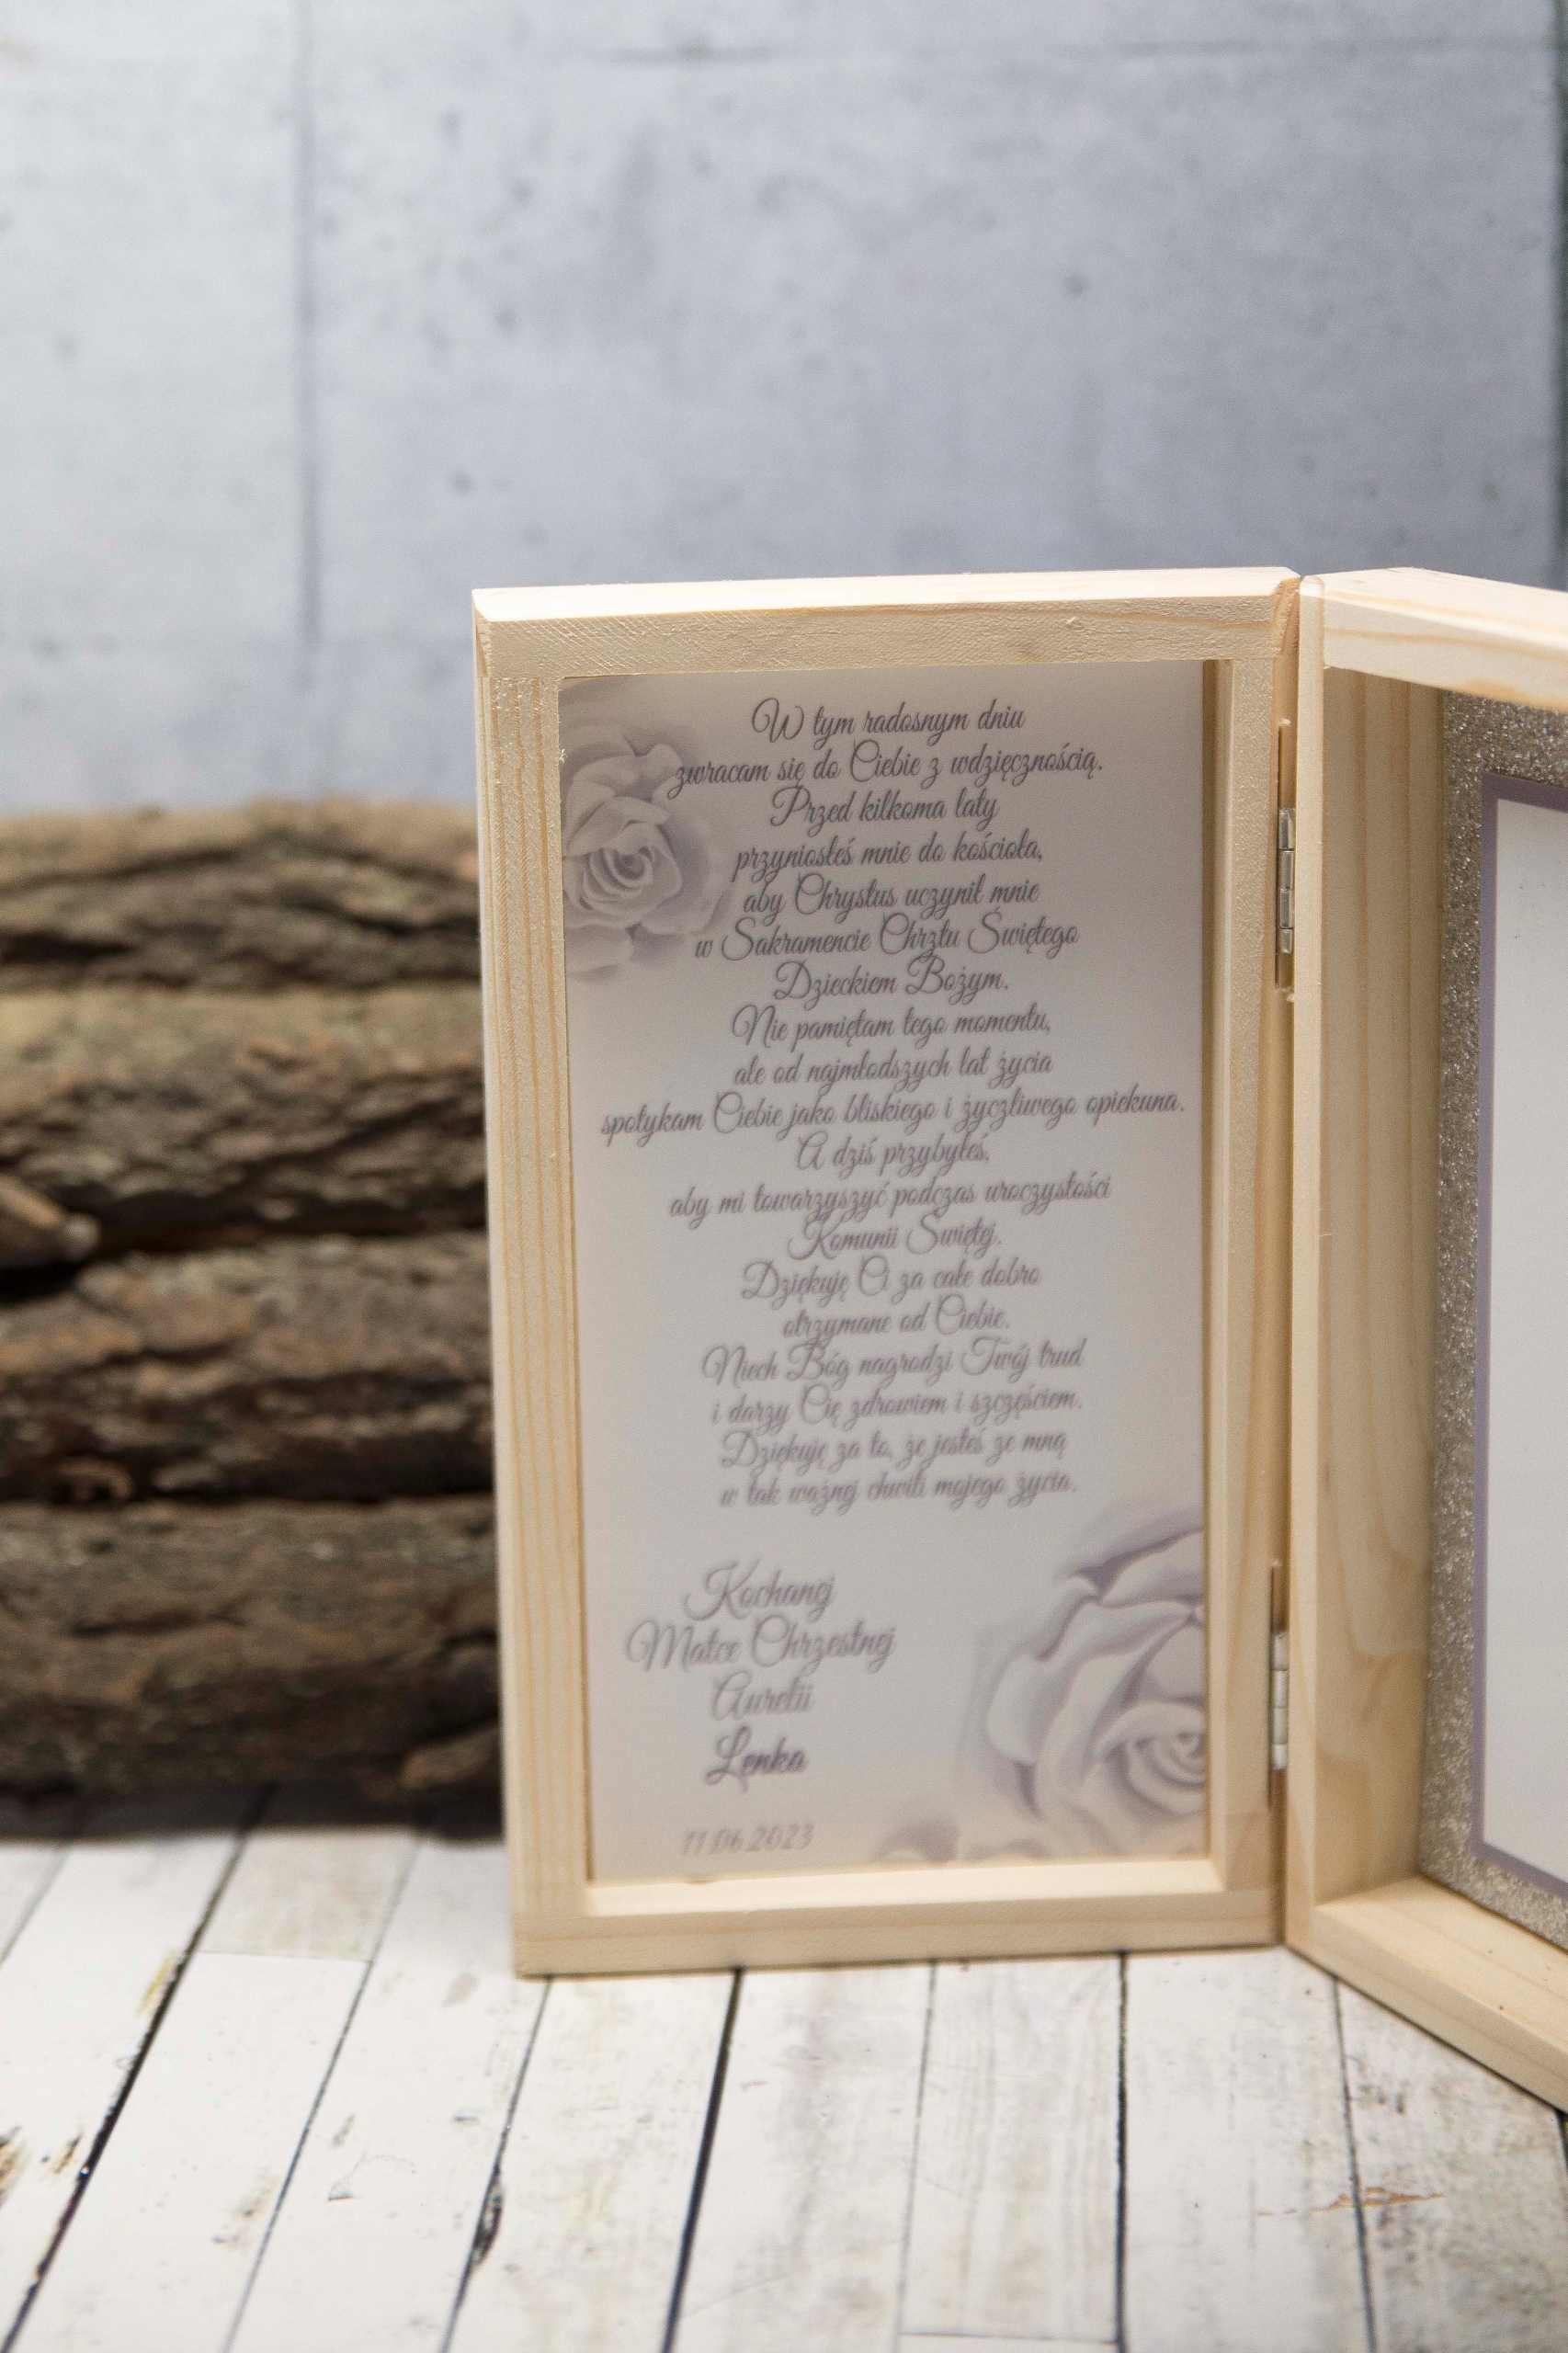 W tym radosnym dniu
zwracam się do Ciebie z wdzięcznością.
Przed kilkoma laty
przyniosłeś mnie do kościoła,
aby Chrystus uczynił mnie
w Sakramencie Chrztu Świętego
Dzieckiem Bożym.
Nie pamiętam tego momentu,
ale od najmłodszych lat życia
spotykam Ciebie jako bliskiego i życzliwego opiekuna.
A dziś przybyłeś,
aby mi towarzyszyć podczas uroczystości
Komunii Świętej.
Dziękuję Ci za całe dobro
otrzymane od Ciebie.
Niech Bóg nagrodzi Twój trud
i darzy Cię zdrowiem i szczęściem.
Dziękuję za to, że jesteś ze mną
w tak ważnej chwili mojego życia.
Kochanej
Matce Chrzestnej
Aurelii
Lenka
11.06.2023